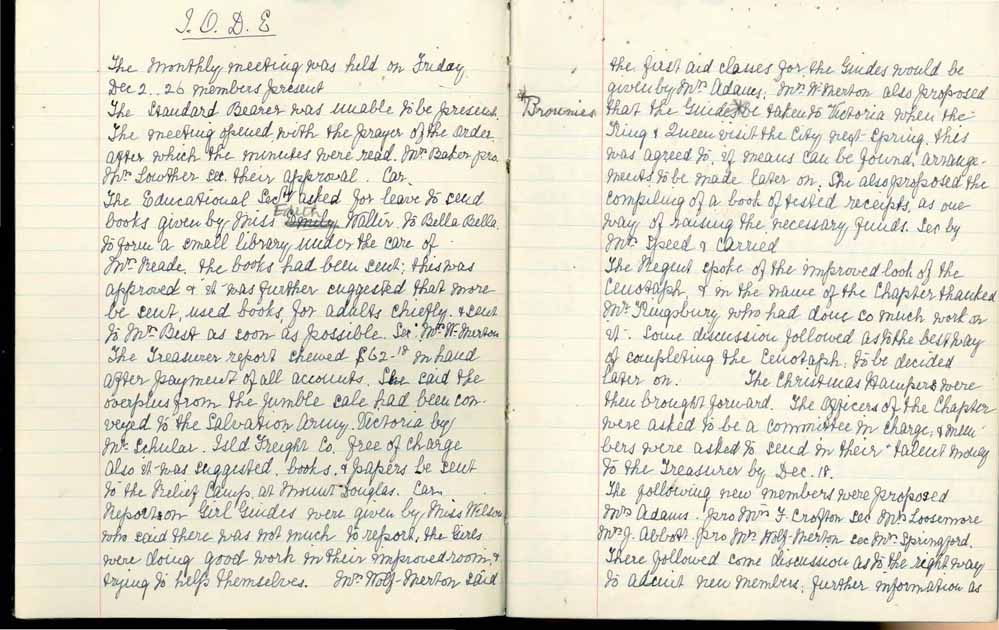 I. O. D. E
The Monthly meeting was held on Friday
Dec 2. 26 members present
The Standard Bearer was unable to be present.
The meeting opened with the prayer of the order
after which the minutes were read. Mrs Baker pro.
Mrs Lowther sec. their approval. Car.
The Educational Secty asked for leave to send
books given by Miss Emily Faith Walter. to Bella Bella.
to form a small library under the care of
Mrs Reade. the books had been sent; this was
approved & it was further suggested that more
be sent, used books for adults chiefly. & sent
to Mrs Best as soon as possible. Sec: Mrs W-Merton
The Treasurer report shewed $62.18 in hand
after payment of all accounts. She said the
overplus from the jumble sale had been con-
veyed to the Salvation Army. Victoria by
Mr Schular. Isld Freight Co. free of charge
also it was suggested. books. & papers be sent
to the Relief Camp, at Mount Douglas. Car.
Report on Girl Guides were given by Miss Wilson
who said there was not much to report, the Girls
were doing good work in their improved room, &
trying to help themselves. Mrs Wolf-Merton said
the first aid classes for the Guides would be
given by Mrs Adams. Mrs W-Merton also proposed
Brownies
that the Guides be taken to Victoria when the
King & Queen visit the City next Spring. this
was agreed to, if means can be found, arrange-
ments to be made later on. She also proposed the
compiling of a book of tested receipts, as one
way of raising the necessary funds. Sec by
Mrs Speed & carried
The Regent spoke of the improved look of the
Cenotaph, & in the name of the Chapter thanked
Mr Kingsbury who had done so much work on
it. Some discussion followed as to the best way
of completing the Cenotaph. to be decided
later on. The Christmas Hampers were
then brought forward. The Officers of the Chapter
were asked to be a committee in charge, & mem-
bers were asked to send in their talent money
to the Treasurer by Dec. 18.
The following new members were proposed
Mrs Adams. pro Mrs F. Crofton sec Mrs Loosemore
Mrs J. Abbott. pro Mrs Wolf-Merton sec Mrs Springford.
There followed some discussion as to the right way
to admit new members, further information as